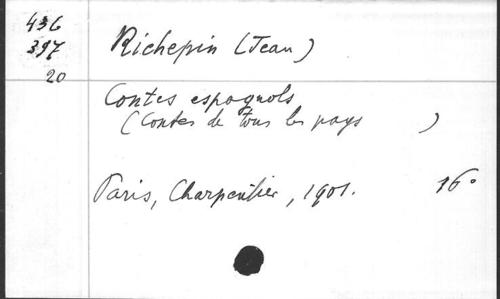 436
397
20
Richepin (Jean)
Contes espagnols
(Contes de tous les pays )
Paris, Charpentier, 1901. 16°